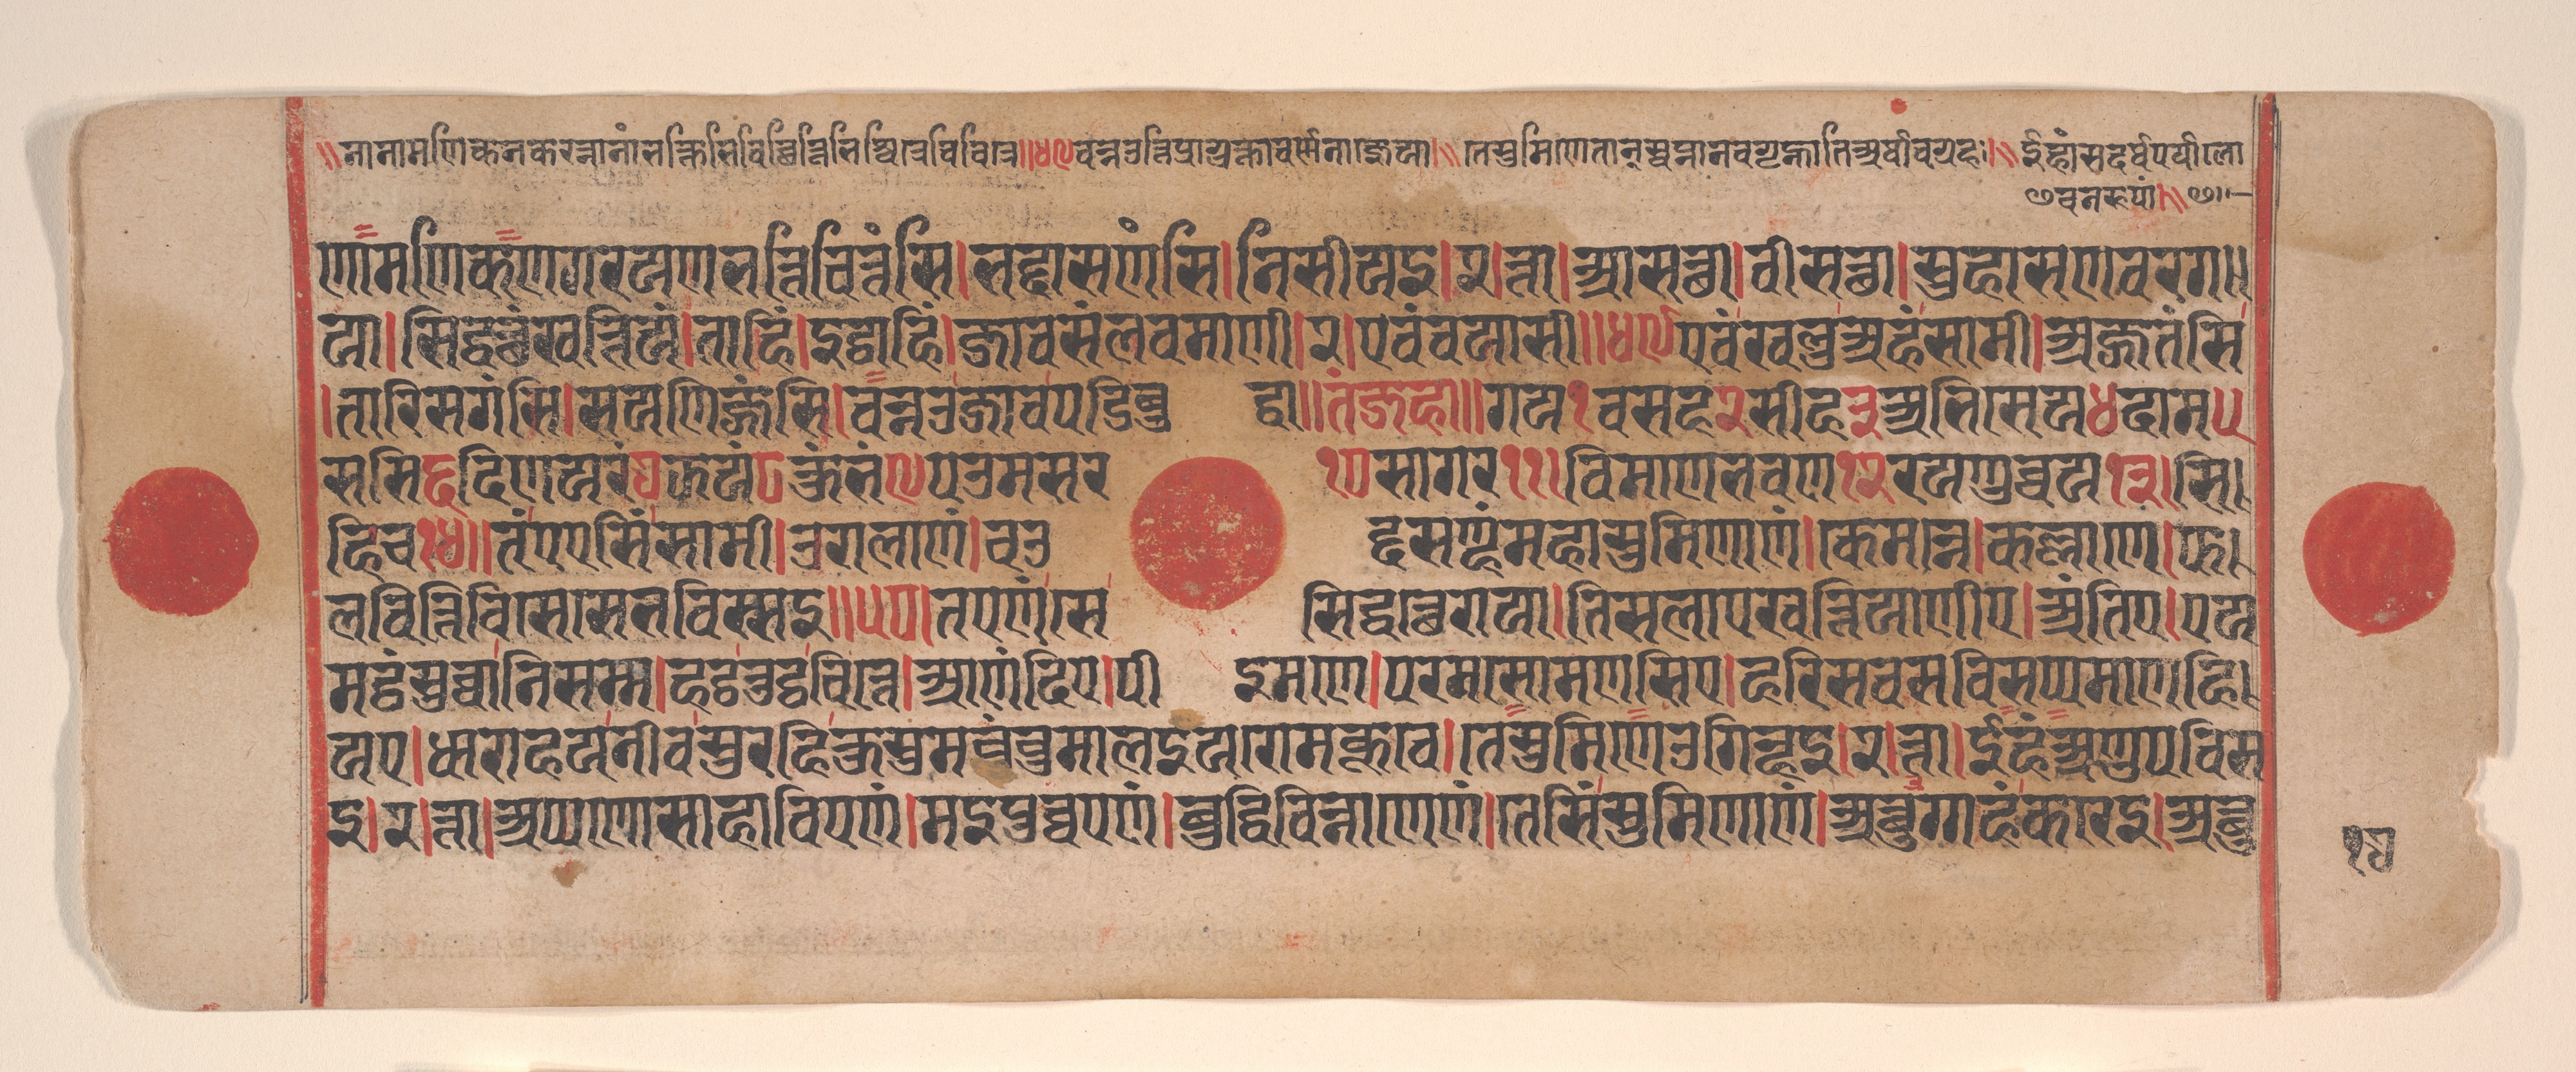 नानामणिकनकरत्नानां भक्तिभिर्विच्छित्तिभिश्चित्रे विचित्रे॥४९ वन्नउत्ति प्राग्रक्तावर्णना ज्ञेया॥ ते सुमिणे तान् स्वप्नानवगृह्णाति अर्थावग्रहः॥ ईहां सदर्थपर्यालो
चनरूपां॥
णामणिकणगरयणभत्तिचित्तंसि।भद्दासणंसि।निसीयइ।२।त्ता।आसत्था।वीसत्था।सुहासणवरग॥
या।सिद्धत्थंखत्तियं।ताहिं।इट्ठाहिं।जावसंलवमाणी।२।एवंवयासी॥४९एवंखलुअहंसामी।अज्जतंसि
।तारिसगंसि।सयणिज्जंसि।वन्नउजावपडिबु द्धा॥तंजहा॥गय१वसह२सीह३अभिसेय४दाम५
ससि६दिणयरं७झयं८कुंभं९पउमसर १०सागर११।विमाणभवण१२रयणुच्चय१३।सि।
हिंच१४॥तंएएसिंसामी।उरालाणं।चउ द्दसण्हंमहासुमिणाणं।केमन्ने।कल्लाणे।फ।
लवित्तिविसेसेभविस्सइ॥५०।तएणंसे सिद्धत्थेराया।तिसलाएखत्तियाणीए।अंतिए।एय
मट्ठंसुच्चानिसम्म।हट्ठतुट्ठचित्ते।आणंदिए।पी इमणे।परमसोमणसिए।हरिसवसविसप्पमाणहि।
यए।धाराहयनीवसुरहिकुसुमचंचुमालइयरोमकूवे।तेसुमिणेउगिन्हइ।२।त्ता।ईहंअणुपविस
इ।२।त्ता।अप्पणोसाहाविएणं।मइपुव्वएणं।बुद्धिविन्नाणेणं।तेसिंसुमिणाणं।अत्थुग्गहंकरेइ।अत्थु
१७